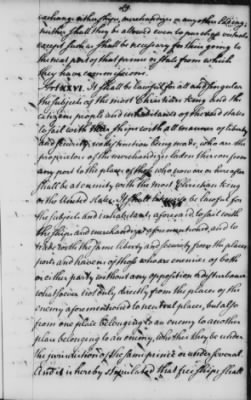 exchange either ships, merchandizes or any other lading
neither shall they be allowed even to purchase victuals
except such as shall be necessary for their going to
the next port of that prince or state from which
they have commissions.
Art XXVI. It shall be lawful for all and singular
the subjects of the most Christian king and the
citizens people and inhabitants of the said states
to sail with their ships with all manner of liberty
and security, no distinction being made, who are the
proprietors of the merchandizes laden thereon from
any port to the places of those who now are or hereafter
shall be at enmity with the most Christian king
or the United States. It shall likewise be lawful for
the subjects and inhabitants aforesaid to sail with
the ships and merchandizes aforementioned, and to
trade with the same liberty and security from the places
ports and havens of those who are enemies of both
or either party without any opposition or disturbance
whatsoever not only directly from the places of the
enemy aforementioned to neutral places, but also
from one place belonging to an enemy to another
place belonging to an enemy, whether they be under
the jurisdiction of the same prince or under several
And it is hereby stipulated that free ships shall